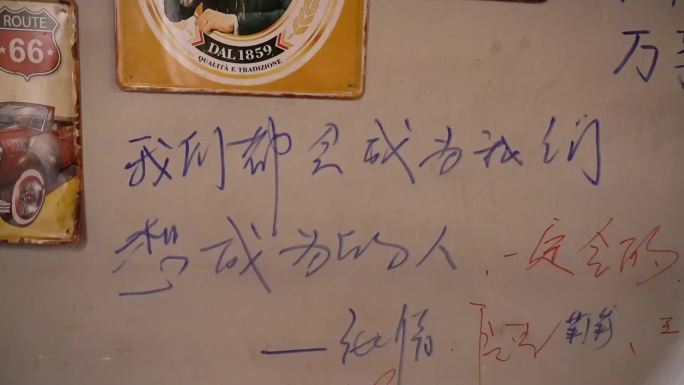 ROUTE
66
DAL 1859
QUALITÀ E TRADIZIONE
万
我们都会成为我们
想成为的人
一定会的
莉莉
王